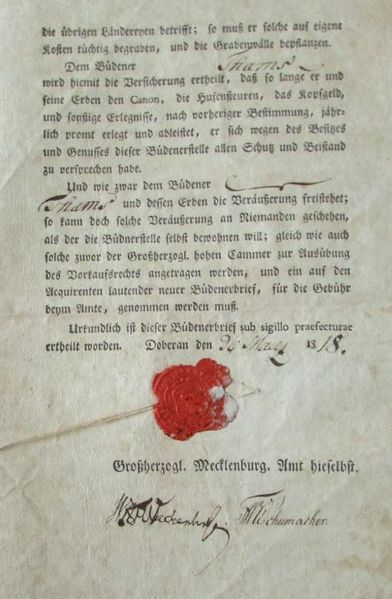 die übrigen Ländereyen betrifft; so muß er solche auf eigene
Kosten tüchtig begraben, und die Grabenwälle bepflanzen.
Dem Büdener Thams
wird hiemit die Versicherung ertheilt, daß so lange er und
seine Erben den Canon, die Hufensteuren, das Kopfgeld,
und sonstige Erlegnisse, nach vorheriger Bestimmung, jähr-
lich promt erlegt und ableistet, er sich wegen des Besitzes
und Genusses dieser Büdenerstelle allen Schutz und Beistand
zu versprechen habe.
Und wie zwar dem Büdener
Thams und dessen Erben die Veräußerung freistehet;
so kann doch solche Veräußerung an Niemanden geschehen,
als der die Büdnerstelle selbst bewohnen will; gleich wie auch
solche zuvor der Großherzogl. hohen Cammer zur Ausübung
des Vorkaufsrechts angetragen werden, und ein auf den
Acquirenten lautender neuer Büdenerbrief, für die Gebühr
beym Amte, genommen werden muß.
Urkundlich ist dieser Büdenerbrief sub sigillo praefecturae
ertheilt worden. Doberan den 1818.
Großherzogl. Mecklenburg. Amt hieselbst.
Schumacher